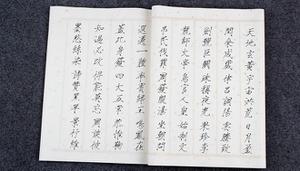 天地玄黃宇宙洪荒日月盈
閏餘成歲律呂調陽雲騰致
劍號巨闕珠稱夜光果珍李
龍師火帝鳥官人皇始制文
弔民伐罪周發殷湯坐朝問
遐邇一體率賓歸王鳴鳳在
蓋此身髮四大五常恭惟鞠
知過必改得能莫忘罔談彼
墨悲絲染詩讚羔羊景行維